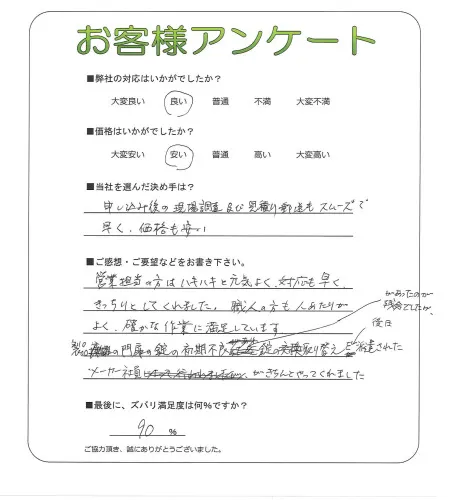 お客様アンケート
■弊社の対応はいかがでしたか？
大変良い 良い 普通 不満 大変不満
■価格はいかがでしたか？
大変安い 安い 普通 高い 大変高い
■当社を選んだ決め手は？
申し込み後の現場調査及び見積り郵送もスムーズで
早く、価格も安い
■ご感想・ご要望などをお書き下さい。
営業担当の方はハキハキと元気よく、対応も早く、
きっちりとしてくれました。職人の方も人あたりが
よく、確かな作業に満足しています
の門扉の錠の初期不良
があったのが
残念でしたが、
後日
錠の 取り替え 派遣された
メーカー社員 がきちんとやってくれました
■最後に、ズバリ満足度は何%ですか？
90 %
ご協力頂き、誠にありがとうございました。